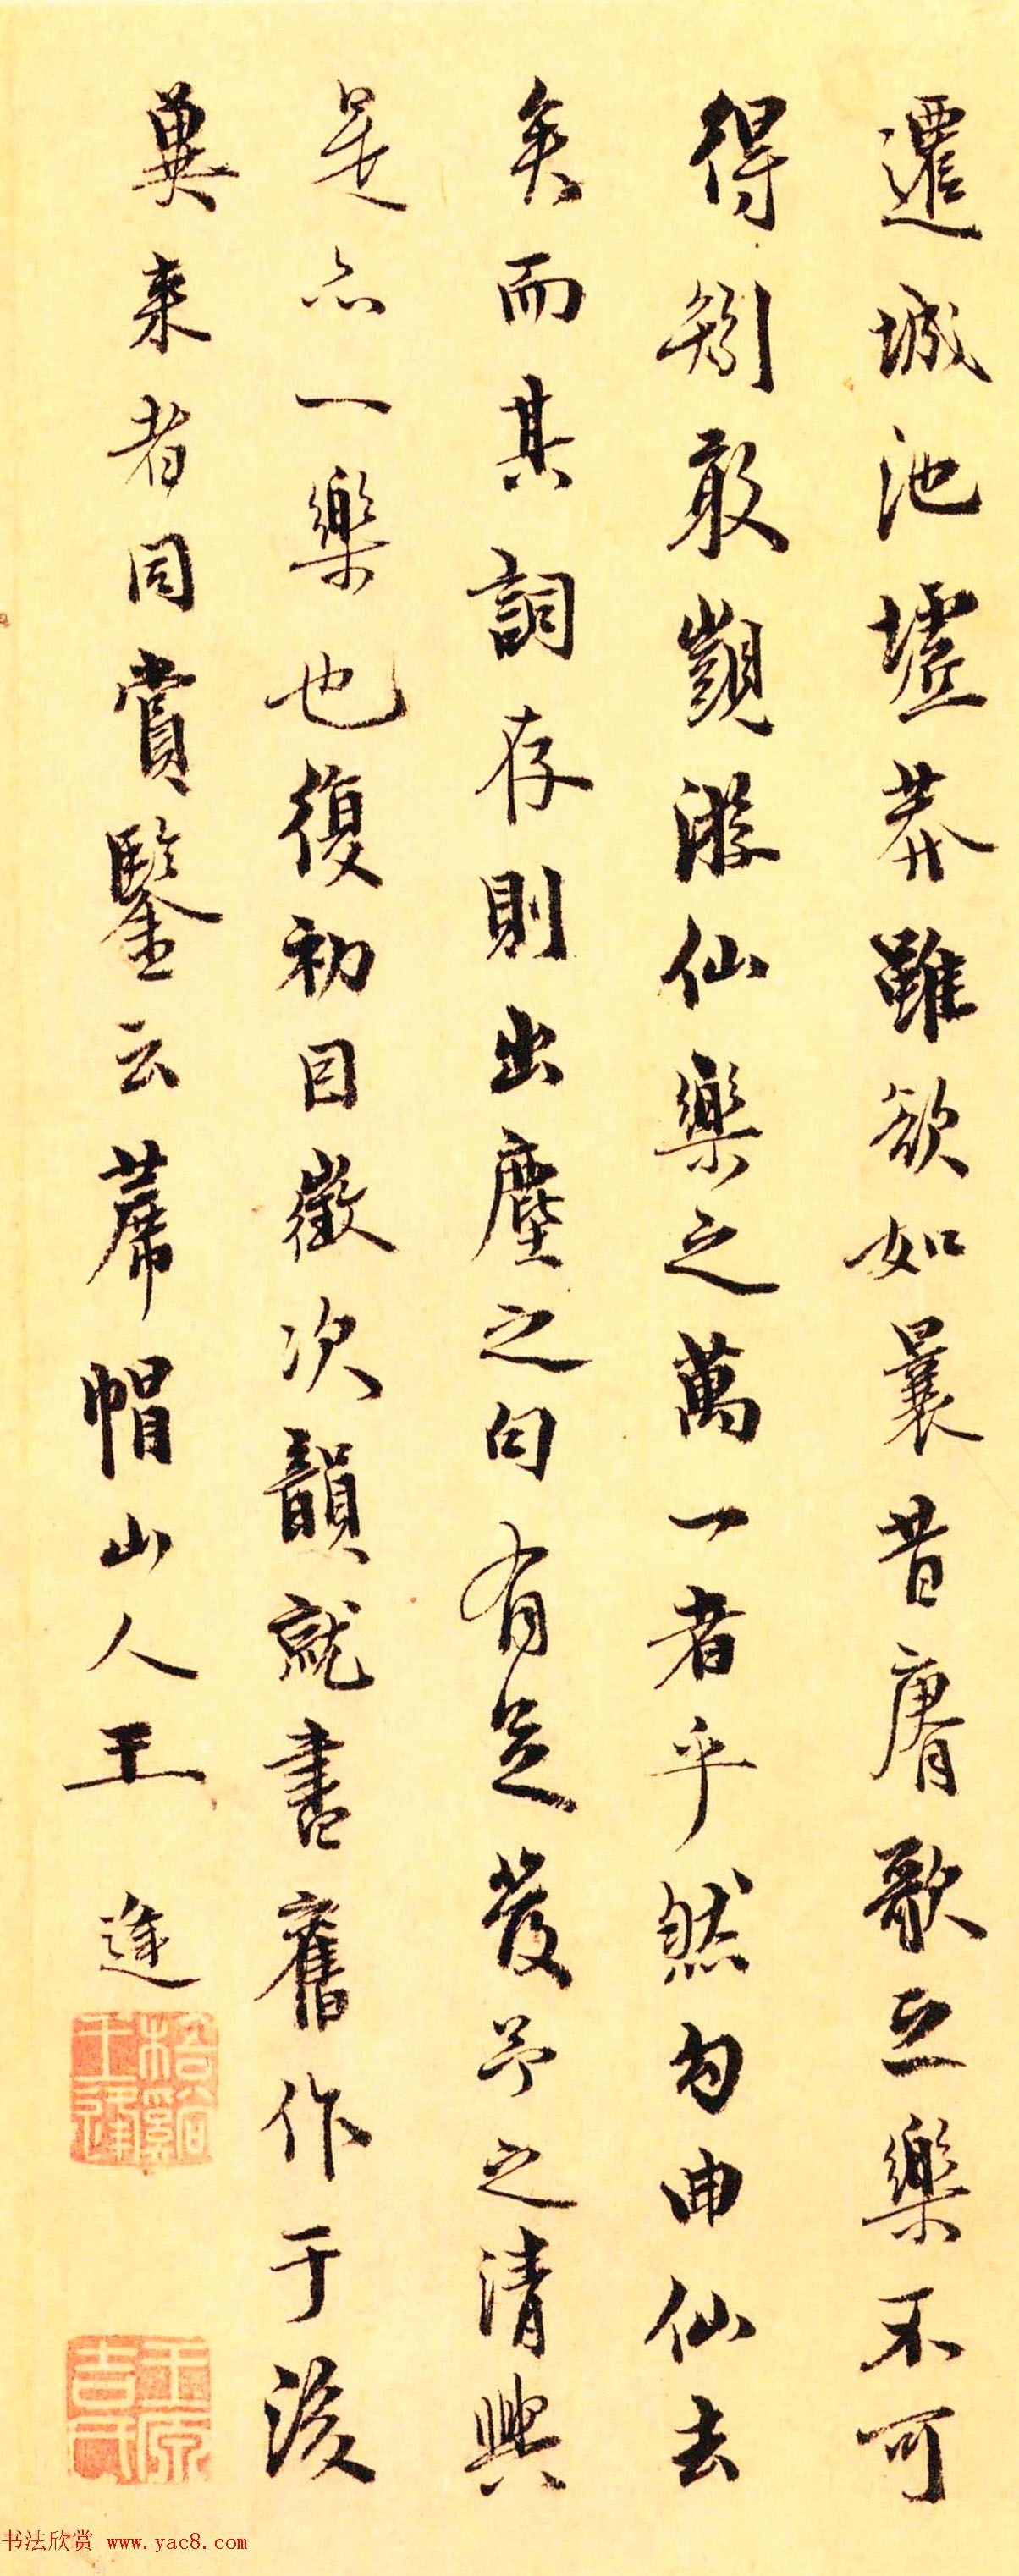 遷城池墟莽雖欲如曩昔賡歌之樂不可
得矧敢覬游仙樂之萬一者乎然勾曲仙去
矣而其詞存則出塵之句有足發予之清興
是亦一樂也復初目徵次韻就書舊作于後
冀来者同賞鑒云蓆帽山人王逢
梧溪
王逢
王原
吉氏
书法欣赏 www.yac8.com